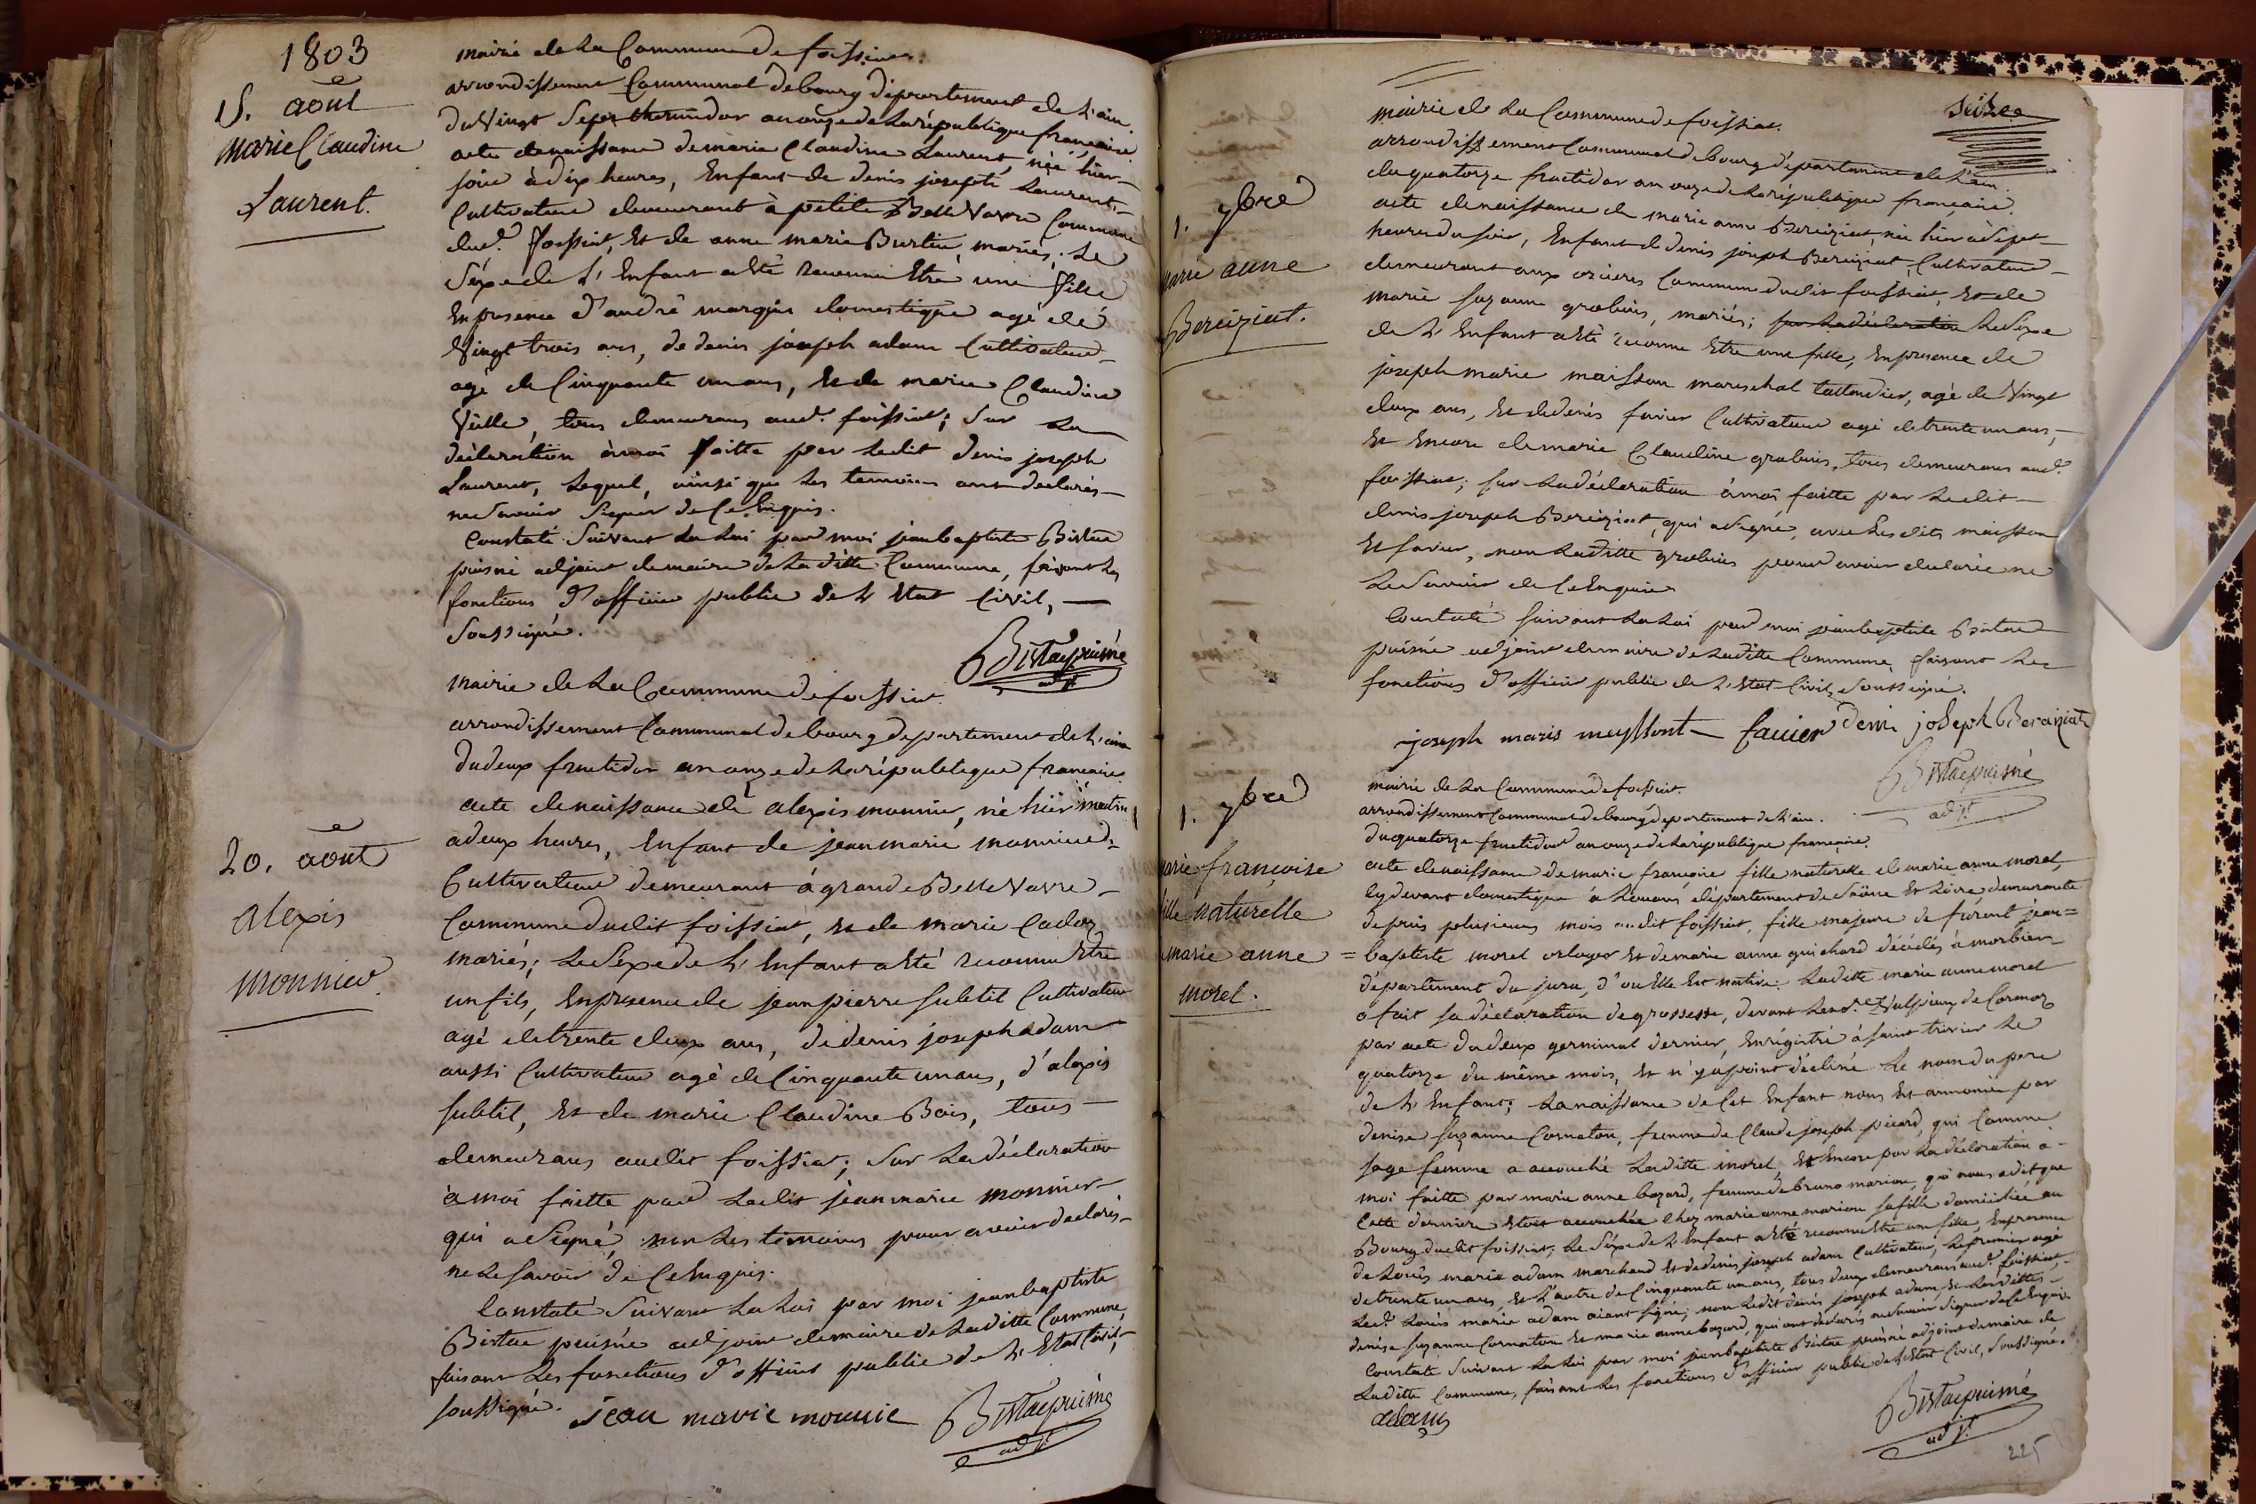 1803
15. aout
marie Claudine
Laurent.
mairie de La Commune de foissiat.
arrondissement Communal de bourg département de L'ain.
Du Vingt Sept thermidor an onze de La république francaise
acte de naissance de marie Claudine Laurent, née hier
soir à dix heures, Enfant de denis joseph Laurent
Cultivateur demeurant à petite Belle Vavre Commune
dud.t foissiat, Et de anne marie Burtin, mariés; Le
Séxe de L'Enfant a été reconnu Etre une fille
En présence d'andré marquis domestique agé de
Vingt trois ans, de denis joseph adam Cultivateur
agé de Cinquante un ans, Et de marie Claudine
Vuille, tous demeurans aud.t foissiat; Sur La
déclaration à moi faitte par Ledit denis joseph
Laurent, Lequel, ainsi que Les temoins ont declarés
ne Savoir Signer de Ce Enquis.
Constaté Suivant La Loi par moi jean baptiste Bistac
puisné adjoint de maire de La ditte Commune, faisant Les
fonctions d'officier public de L'Etat Civil,
Soussigné.
Bistac puisné
adj.t
20. aout
alexis
monnier
mairie de La Commune de foissiat.
arrondissement Communal de bourg département de L'ain
Du deux fructidor an onze de La république francaise
acte de naissance de alexis monnier, né hier matin
a deux heures, Enfant de jean marie monnier
Cultivateur demeurant à grande Belle Vavre
Commune dudit foissiat, Et de marie Cadoz
mariés; Le Séxe de L'Enfant a été reconnu Etre
un fils, En présence de jean pierre subtil Cultivateur
agé de trente deux ans, de denis joseph adam
aussi Cultivateur agé de Cinquante un ans, d'alexis
subtil, Et de marie Claudine Bois, tous
demeurans audit foissiat; Sur La déclaration
à moi faitte par Ledit jean marie monnier
qui a Signé, non Les témoins pour avoir declarés
ne Le Savoir de Ce Enquis.
Constaté Suivant La Loi par moi jean baptiste
Bistac puisné adjoint de maire de La ditte Commune,
faisant Les fonctions d'officier public de L'Etat Civil,
soussigné.
jean marie monnie
Bistac puisné
adj.t
Seize
1. 7bre
marie anne
Bereiziat.
mairie de La Commune de foissiat.
arrondissement Communal de bourg département de L'ain.
du quatorze fructidor an onze de La république francaise.
acte de naissance de marie anne Bereiziat, née hier à Sept
heures du soir, Enfant de denis joseph Bereiziat, Cultivateur
demeurant aux Commune dudit foissiat, Et de
marie suzanne grabuis, mariés; sur La déclaration Le Séxe
de L'Enfant a été reconnu Etre une fille, En présence de
joseph marie maisson mareschal taillandier, agé de Vingt
deux ans, Et de denis favier Cultivateur agé de trente un ans,
Et Encore de marie Claudine grabuis, tous demeurans aud.t
foissiat; sur La déclaration à moi faitte par Ledit
denis joseph Bereiziat, qui a signé, avec Les dits maisson
Et favier, non La ditte grabuis pour avoir declarée ne
Le Savoir de Ce Enquise
Constaté suivant La Loi par moi jean baptiste Bistac
puisné adjoint de maire de La ditte Commune, faisant Les
fonctions d'officier public de L'Etat Civil, Soussigné.
joseph maris meyssont favier deni joseph Bereiziat
Bistac puisné
adj.t
1. 7bre
marie françoise
fille naturelle
marie anne
morel.
mairie de La Commune de foissiat.
arrondissement Communal de bourg département de L'ain.
du quatorze fructidor an onze de La république francaise.
acte de naissance de marie françoise fille naturelle de marie anne morel,
cy devant domestique à Louans département de Saône Et Loire demeurante
depuis plusieurs mois audit foissiat, fille majeure de feurent jean=
=baptiste morel orloger Et de marie anne guichard décédés à morbier
département du jura, d'ou Elle Est native. La ditte marie anne morel
a fait sa déclaration de grossesse, devant Le no.re Vulpian de Cormoz
par acte du deux germinal dernier, Enrégistré à saint trivier Le
quatorze du même mois, Et n'y a point décliné Le nom du pere
de L'Enfant; La naissance de Cet Enfant nous Est annoncée par
denise suzanne Cornaton, femme de Claude joseph picard, qui Comme
sage femme a accouché La ditte morel, Et Encore par La déclaration à
moi faitte par marie anne bozard, femme de bruno marion, qui nous a dit que
Cette derniere Etoit accouchée Chez marie anne marion sa fille domiciliée au
Bourg dudit foissiat; Le Séxe de L'Enfant a été reconnu Etre une fille, En présence
de Louis marie adam marchand Et de denis joseph adam Cultivateur, Le premier agé
de trente un ans, Et L'autre de Cinquante un ans, tous deux demeurans aud.t foissiat,
Led.t Louis marie adam aiant signé; non Ledit denis joseph adam, Et Les dittes
denise suzanne Cornaton Et marie anne bozard, qui ont declarés ne Savoir Signer de Ce Enquis.
Constaté Suivant La Loi par moi jean baptiste Bistac puisné adjoint de maire de
La ditte Commune, faisant Les fonctions d'officier public de L'Etat Civil, Soussigné.
adam
Bistac puisné
adj.t
225